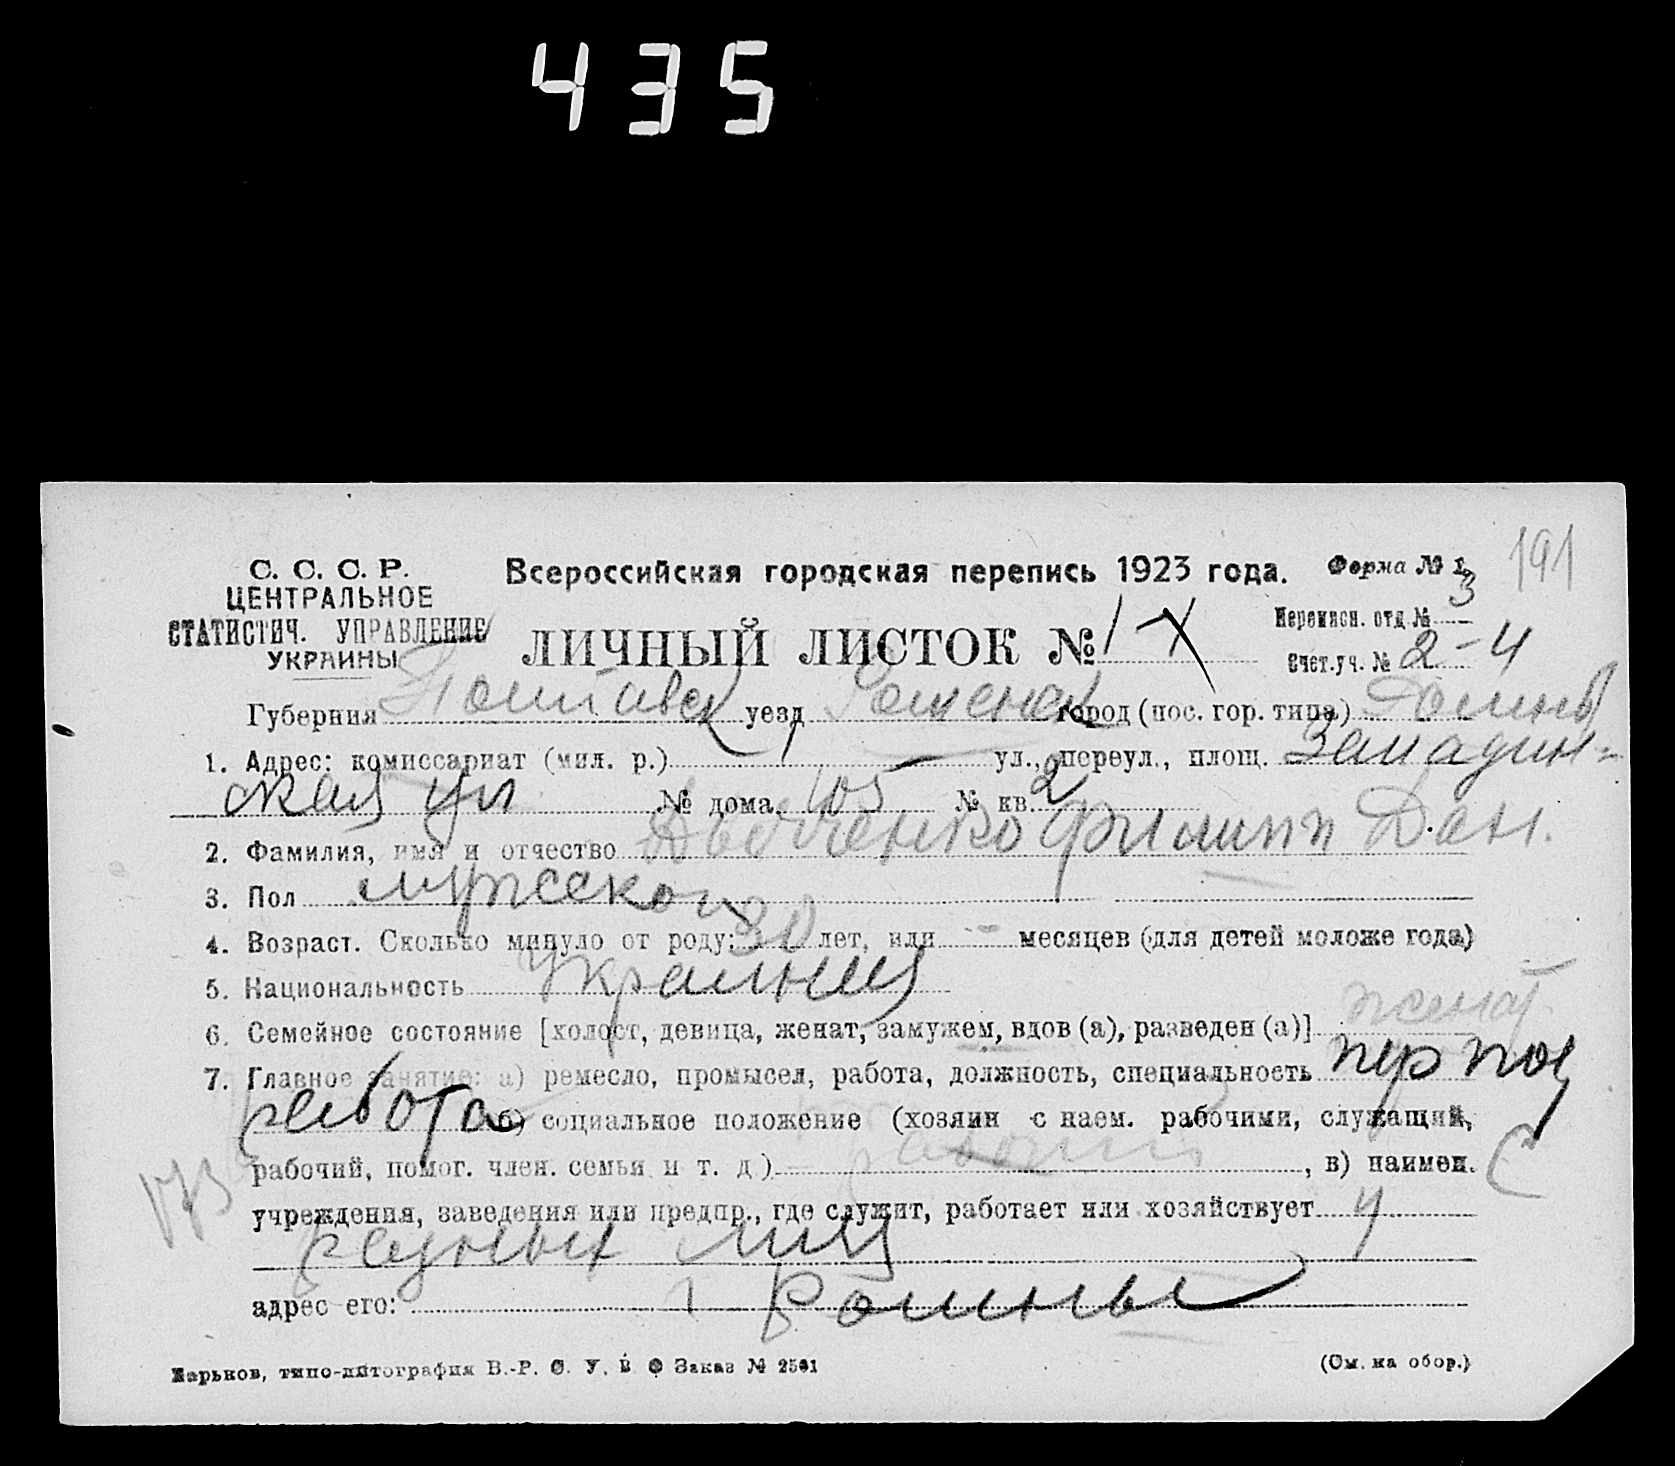 435
191
С. С. С. Р.
ЦЕНТРАЛЬНОЕ
СТАТИСТИЧ. УПРАВЛЕНИЕ
УКРАИНЫ
Всероссийская городская перепись 1923 года.
Форма № 1
ЛИЧНЫЙ ЛИСТОК № 1
Переписн. отд. № 3
Счет. уч. № 2-4
Губерния Полтавск уезд Роменск город (пос. гор. типа) Ромны
1. Адрес: комиссариат (мил. р.) — ул., переул., площ.
ская ул № дома 105 № кв. 2
2. Фамилия, имя и отчество Филипп Дан.
3. Пол мужской
4. Возраст. Сколько минуло от роду: 30 лет, или - месяцев (для детей моложе года)
5. Национальность
6. Семейное состояние [холост, девица, женат, замужем, вдов (а), разведен (а)] женат
7. Главное занятие: а) ремесло, промысел, работа, должность, специальность
работа б) социальное положение (хозяин с наем. рабочими, служащий,
рабочий, помог. член. семьи и т. д.) , в) наимен.
учреждения, заведения или предпр., где служит, работает или хозяйствует у
разных лиц
адрес его: г Ромны
Харьков, типо-литография В.-Р. С. У. В Ф Заказ № 2501
(См. на обор.)